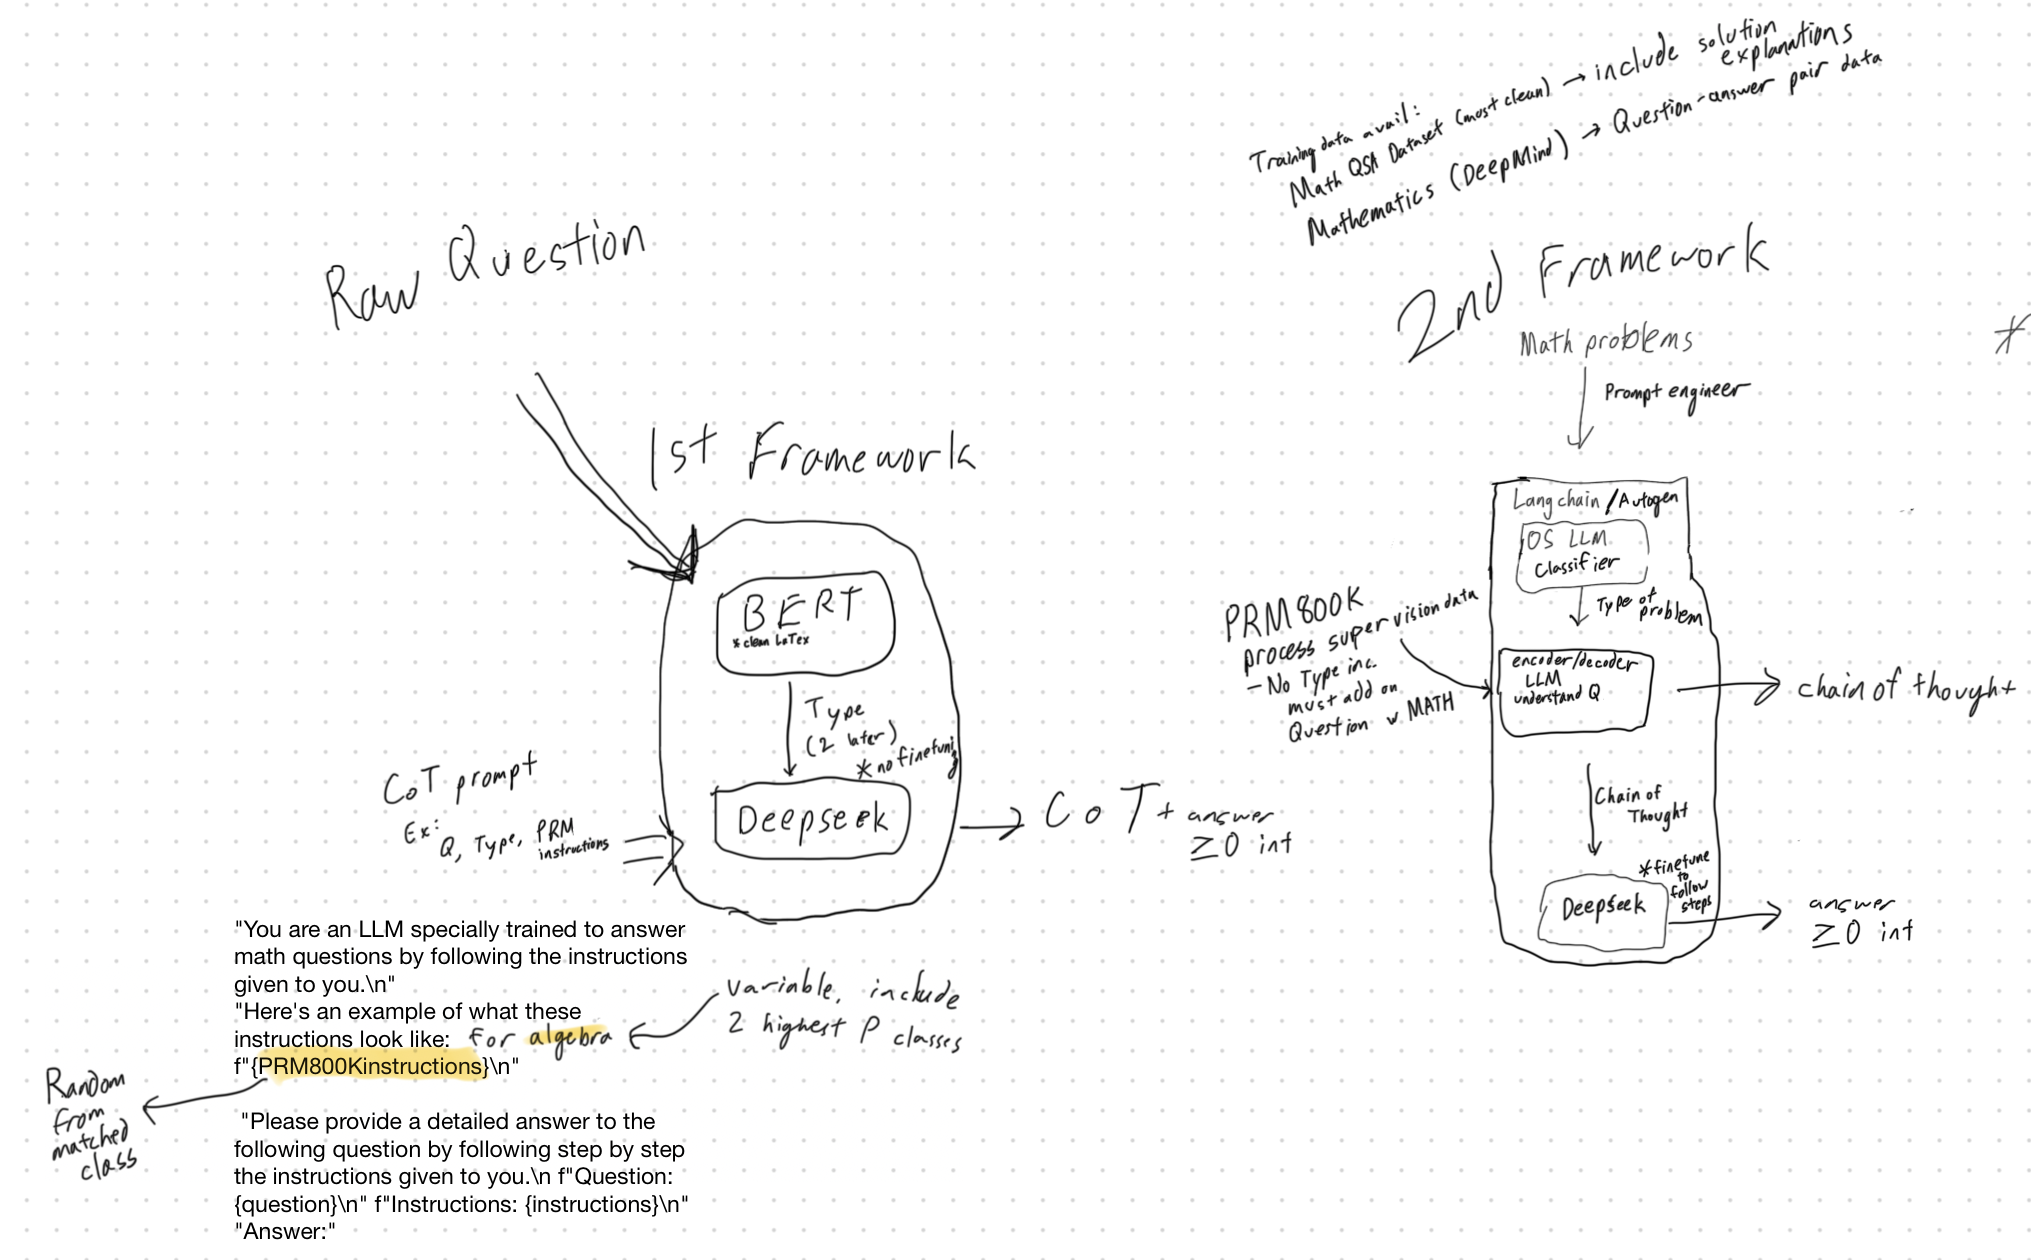 Training data avail:
Math QSA Dataset (most clean) → include solution explanations
Mathematics (DeepMind) → Question-answer pair data
Raw Question
1st Framework
BERT
* clean LaTex
Type
(2 later)
* no finetuning
Deepseek
CoT prompt
Ex:
Q, Type, PRM
instructions
CoT + answer
≥0 int
"You are an LLM specially trained to answer
math questions by following the instructions
given to you.\n"
"Here's an example of what these
instructions look like: for algebra
f"{PRM800Kinstructions}\n"
variable, include
2 highest P classes
Random
from
matched
class
"Please provide a detailed answer to the
following question by following step by step
the instructions given to you.\n f"Question:
{question}\n" f"Instructions: {instructions}\n"
"Answer:"
2nd Framework
Math problems
Prompt engineer
Langchain / Autogen
OS LLM
Classifier
Type of
problem
PRM800K
process supervision data
- No Type inc.
must add on
Question w MATH
encoder/decoder
LLM
understand Q
chain of thought
Chain of
Thought
* finetune
to
follow
steps
Deepseek
answer
≥0 int
*